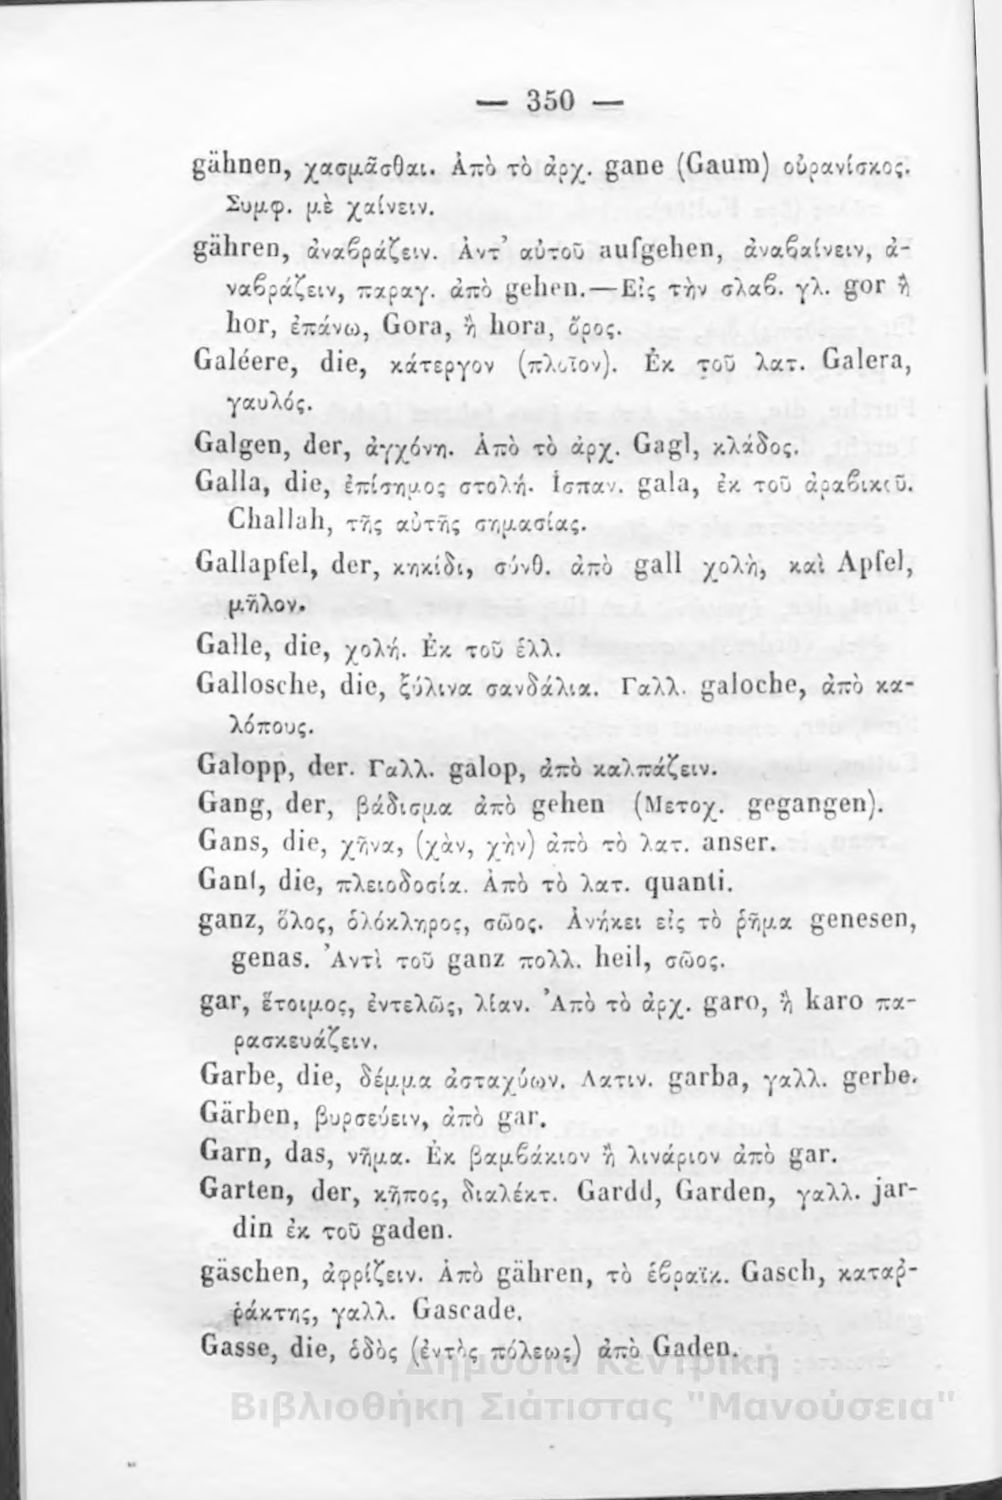 — 350 —
gähnen, χασμᾶσθαι. Ἀπὸ τὸ ἀρχ. gane (Gaum) οὐρανίσκος.
Συμφ. μὲ χαίνειν.
gähren, ἀναβράζειν. Ἀντ' αὐτοῦ aufgehen, ἀναβαίνειν, ἀ-
ναβράζειν, παραγ. ἀπὸ gehen.—Εἰς τὴν σλαβ. γλ. gor ἢ
hor, ἐπάνω, Gora, ἢ hora, ὄρος.
Galéere, die, κάτεργον (πλοῖον). Ἐκ τοῦ λατ. Galera,
γαυλός.
Galgen, der, ἀγχόνη. Ἀπὸ τὸ ἀρχ. Gagl, κλάδος.
Galla, die, ἐπίσημος στολή. Ἱσπαν. gala, ἐκ τοῦ ἀραβικοῦ.
Challah, τῆς αὐτῆς σημασίας.
Gallapfel, der, κηκίδι, σύνθ. ἀπὸ gall χολὴ, καὶ Apfel,
μῆλον.
Galle, die, χολή. Ἐκ τοῦ ἑλλ.
Gallosche, die, ξύλινα σανδάλια. Γαλλ. galoche, ἀπὸ κα-
λόπους.
Galopp, der. Γαλλ. galop, ἀπὸ καλπάζειν.
Gang, der, βάδισμα ἀπὸ gehen (Μετοχ. gegangen).
Gans, die, χῆνα, (χὰν, χὴν) ἀπὸ τὸ λατ. anser.
Gant, die, πλειοδοσία. Ἀπὸ τὸ λατ. quanti.
ganz, ὅλος, ὁλόκληρος, σῶος. Ἀνήκει εἰς τὸ ῥῆμα genesen,
genas. Ἀντὶ τοῦ ganz πολλ. heil, σῶος.
gar, ἕτοιμος, ἐντελῶς, λίαν. Ἀπὸ τὸ ἀρχ. garo, ἢ karo πα-
ρασκευάζειν.
Garbe, die, δέμμα ἀσταχύων. Λατιν. garba, γαλλ. gerbe.
Gärben, βυρσεύειν, ἀπὸ gar.
Garn, das, νῆμα. Ἐκ βαμβάκιον ἢ λινάριον ἀπὸ gar.
Garten, der, κῆπος, διαλέκτ. Gardd, Garden, γαλλ. jar-
din ἐκ τοῦ gaden.
gäschen, ἀφρίζειν. Ἀπὸ gähren, τὸ ἑβραϊκ. Gasch, καταῤ-
ῥάκτης, γαλλ. Gascade.
Gasse, die, ὁδὸς (ἐντὸς πόλεως) ἀπὸ Gaden.
Δημόσια Κεντρική
Βιβλιοθήκη Σιάτιστας "Μανούσεια"